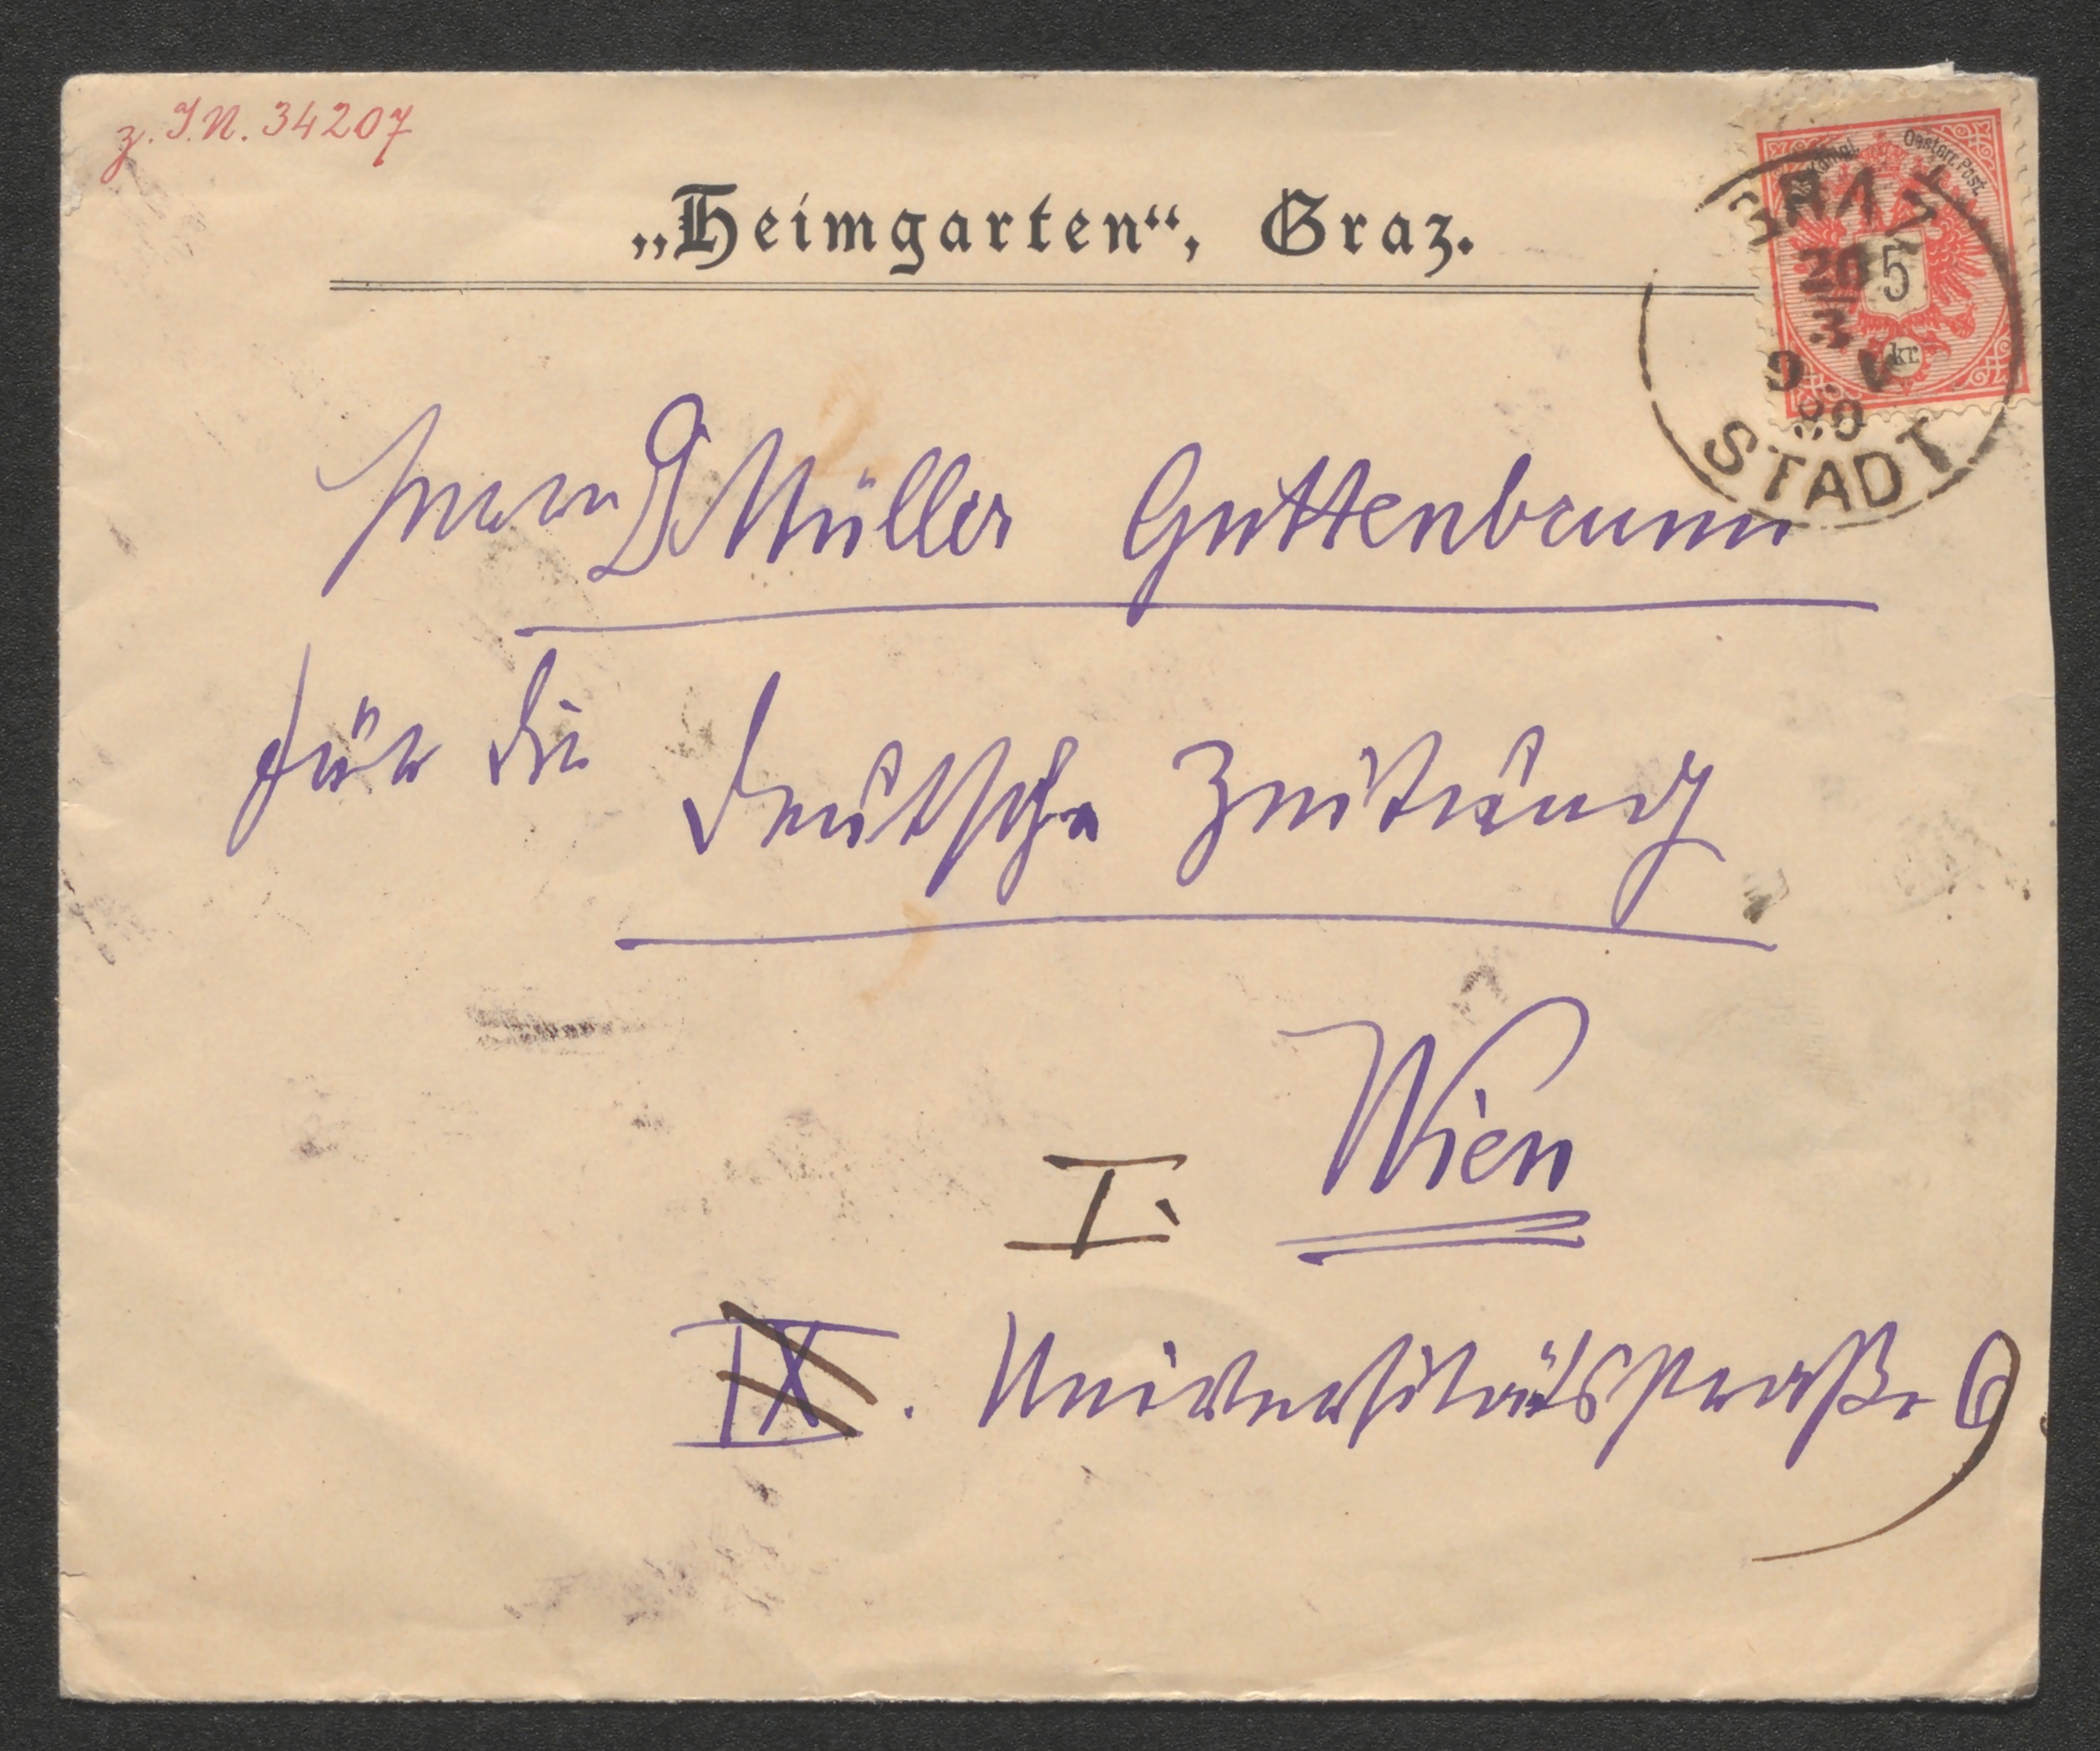 z. I.N. 34207
„Heimgarten“, Graz.
Oesterr. Post.
5
kr.
GRAZ
20
3
9. V
89
STADT
Herrn Müller Guttenbrunn
für die deutsche Zeitung
Wien
I.
IX. Universitätsstraße 6